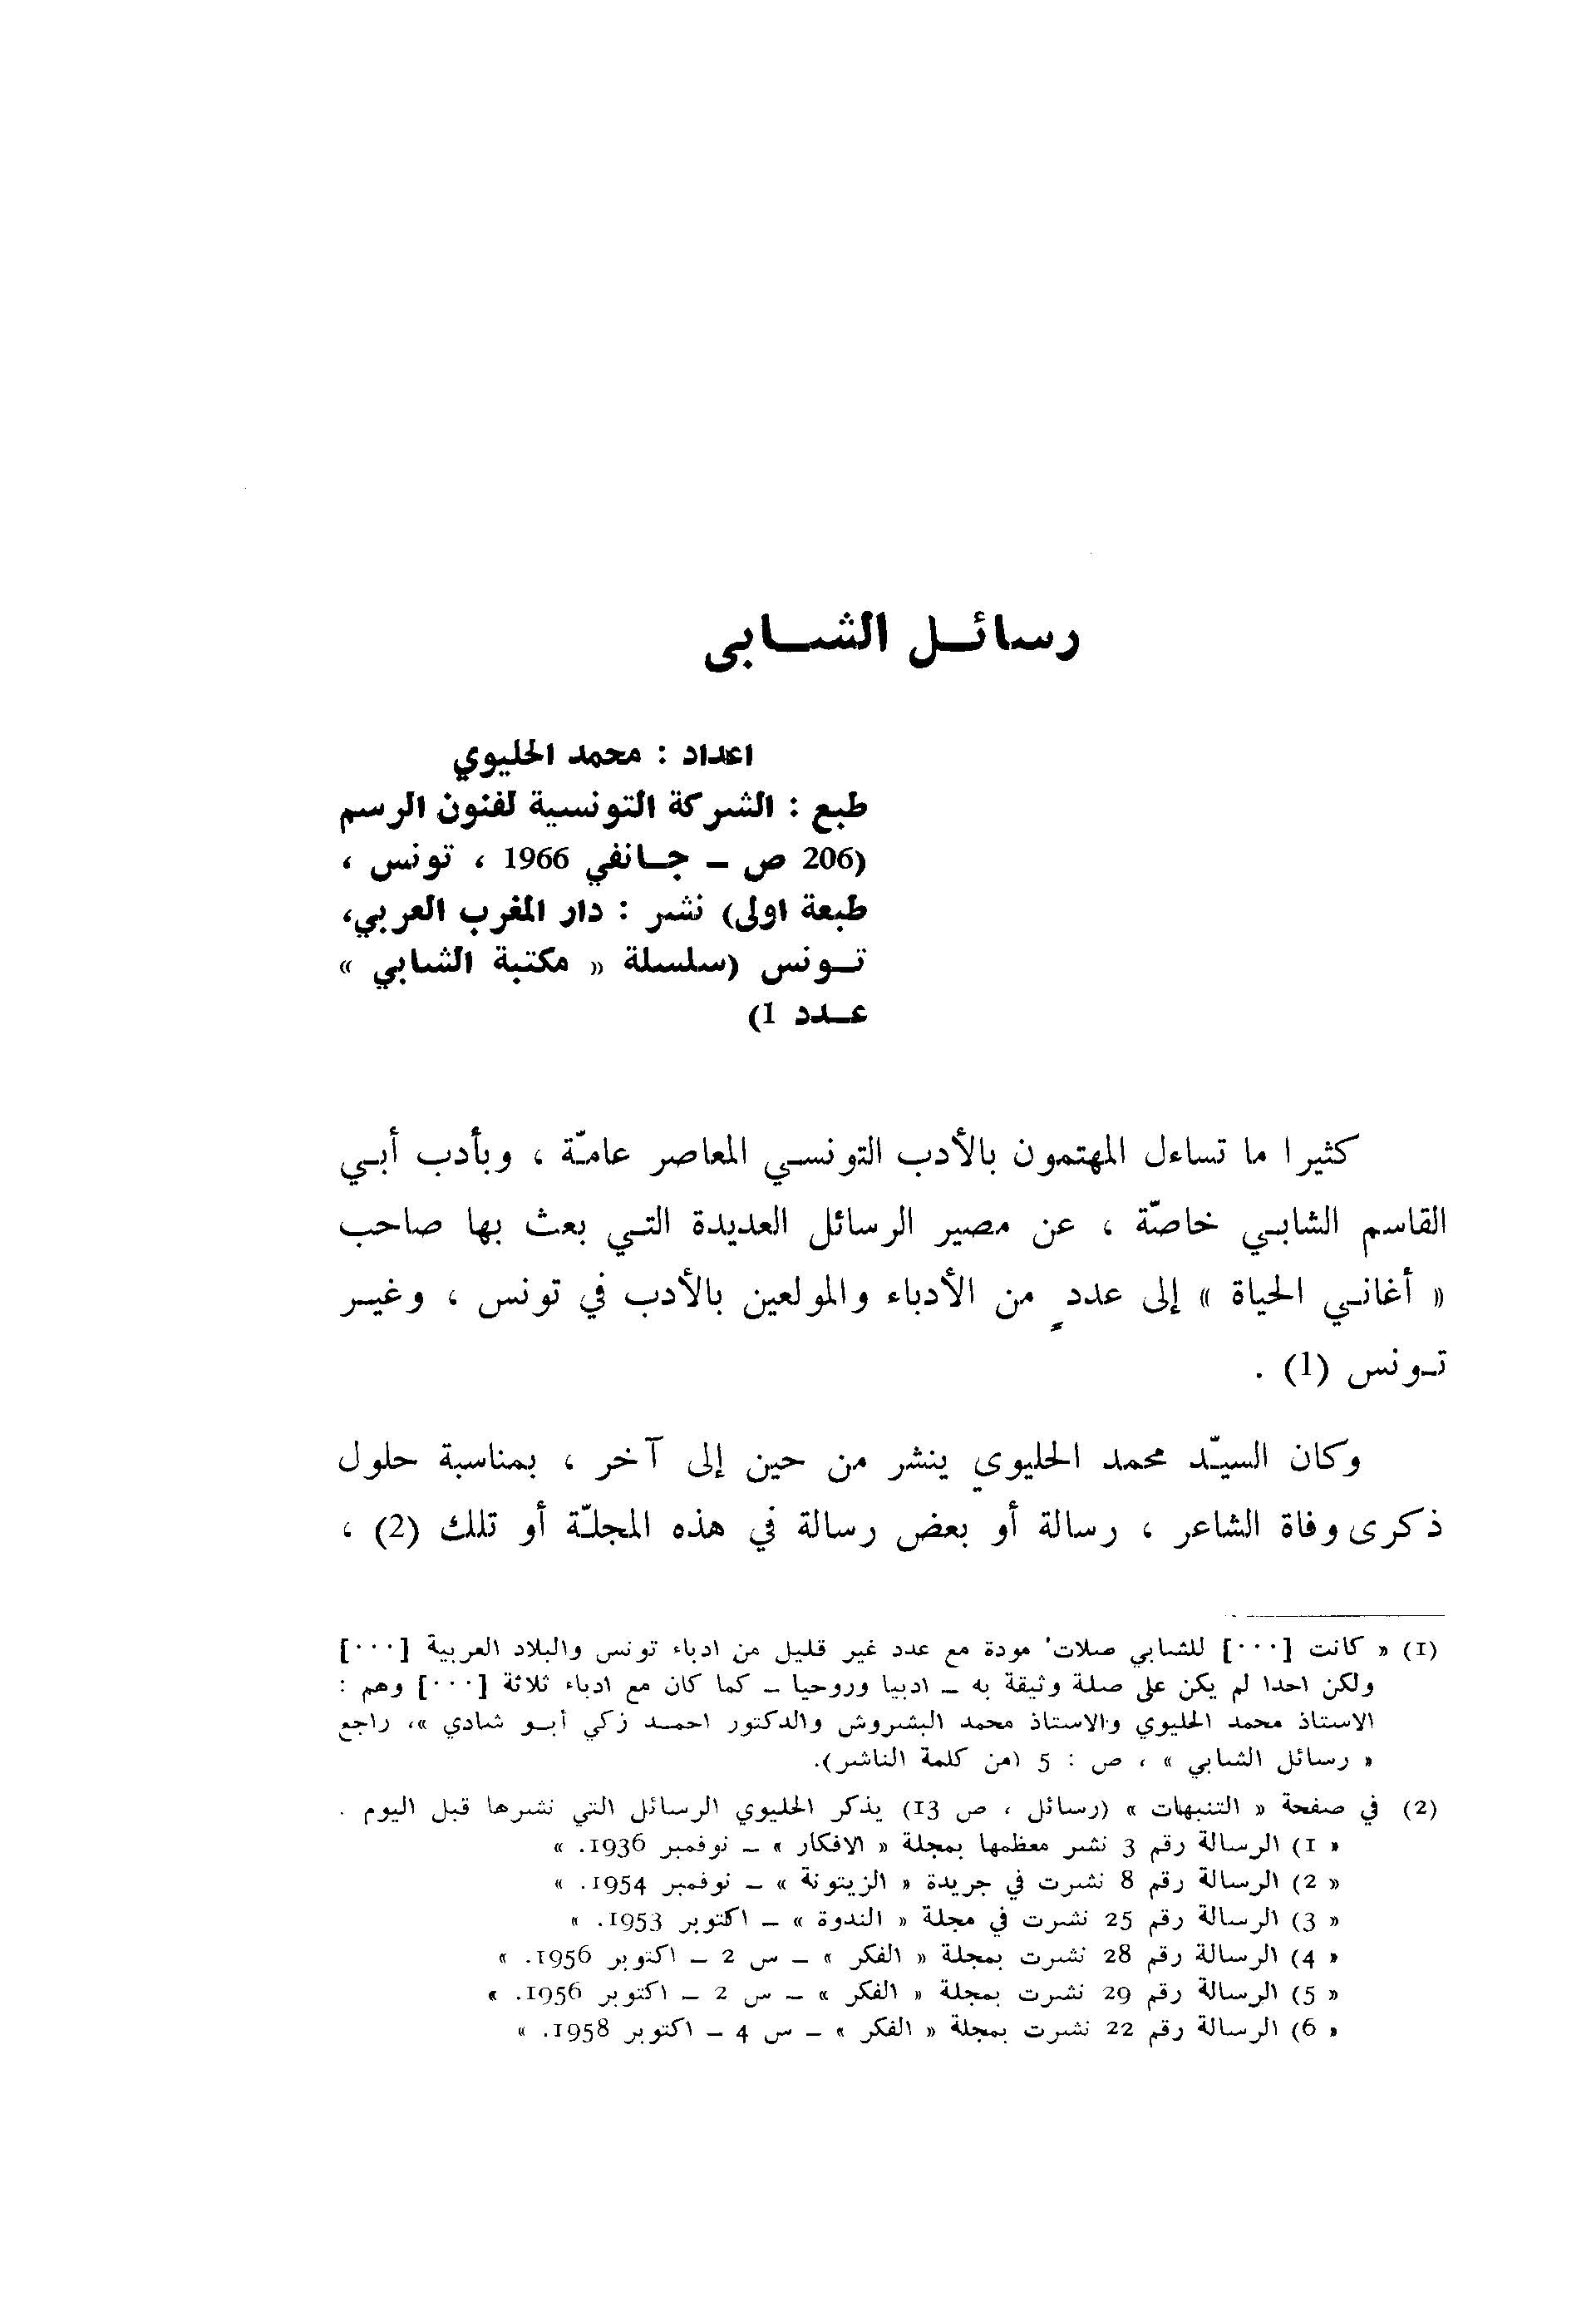 رسائل الشابي
اعداد : محمد الحليوي
طبع : الشركة التونسية لفنون الرسم
(206 ص – جانفي 1966 ، تونس ،
طبعة اولى) نشر : دار المغرب العربي،
تونس (سلسلة « مكتبة الشابي »
عدد 1)
كثيرا ما تساءل المهتمون بالأدب التونسي المعاصر عامّة ، وبأدب أبي
القاسم الشابي خاصّة ، عن مصير الرسائل العديدة التي بعث بها صاحب
« أغاني الحياة » إلى عددٍ من الأدباء والمولعين بالأدب في تونس ، وغير
تونس (1) .
وكان السيّد محمد الحليوي ينشر من حين إلى آخر ، بمناسبة حلول
ذكرى وفاة الشاعر ، رسالة أو بعض رسالة في هذه المجلّة أو تلك (2) ،
(1) « كانت [...] للشابي صلات' مودة مع عدد غير قليل من ادباء تونس والبلاد العربية [...]
ولكن احدا لم يكن على صلة وثيقة به – ادبيا وروحيا – كما كان مع ادباء ثلاثة [...] وهم :
الاستاذ محمد الحليوي والاستاذ محمد البشروش والدكتور احمد زكي أبو شادي »، راجع
« رسائل الشابي » ، ص : 5 (من كلمة الناشر).
(2) في صفحة « التنبهات » (رسائل ، ص 13) يذكر الحليوي الرسائل التي نشرها قبل اليوم .
« 1) الرسالة رقم 3 نشر معظمها بمجلة « الافكار » – نوفمبر 1936. »
« 2) الرسالة رقم 8 نشرت في جريدة « الزيتونة » – نوفمبر 1954. »
« 3) الرسالة رقم 25 نشرت في مجلة « الندوة » – اكتوبر 1953. »
« 4) الرسالة رقم 28 نشرت بمجلة « الفكر » – س 2 – اكتوبر 1956. »
« 5) الرسالة رقم 29 نشرت بمجلة « الفكر » – س 2 – اكتوبر 1956. »
« 6) الرسالة رقم 22 نشرت بمجلة « الفكر » – س 4 – اكتوبر 1958. »